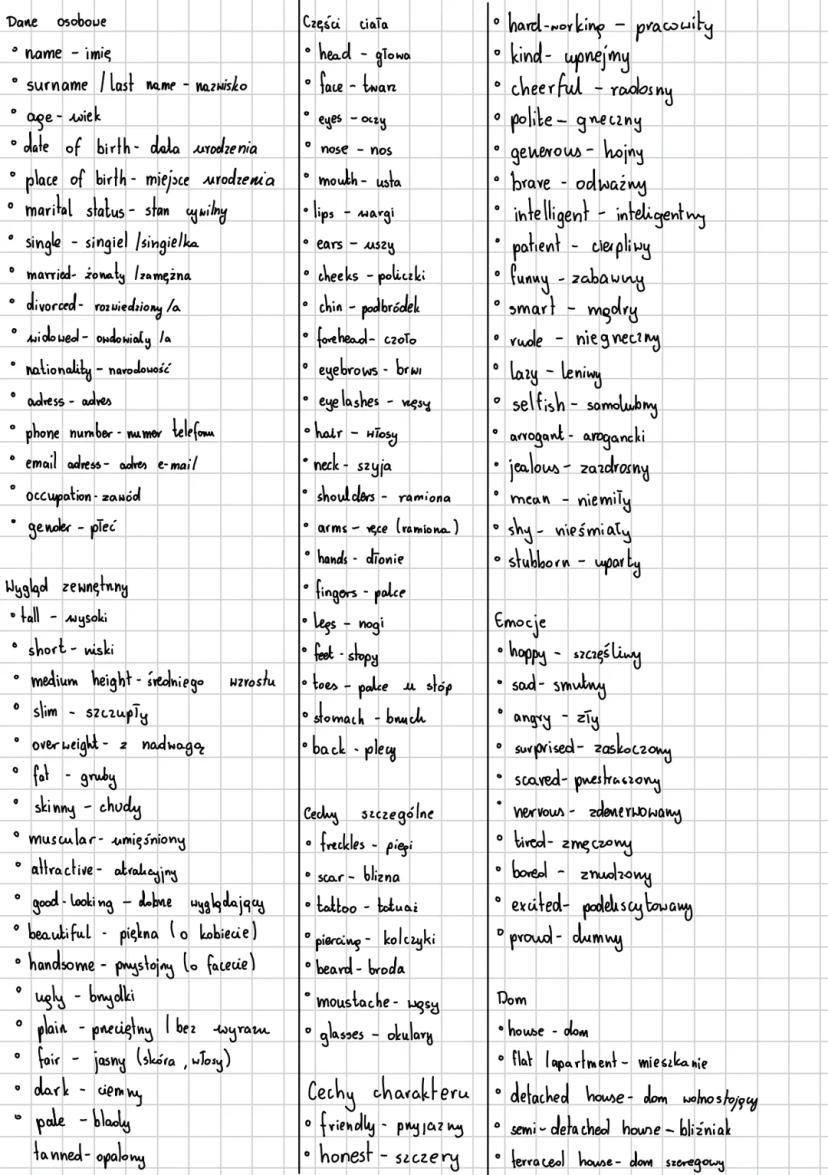 Dane osobowe
• name - imię
• surname / last name - nazwisko
• age - wiek
• date of birth - data urodzenia
• place of birth - miejsce urodzenia
• marital status - stan cywilny
• single - singiel / singielka
• married - żonaty / zamężna
• divorced - rozwiedziony /a
• widowed - owdowiały /a
• nationality - narodowość
• adress - adres
• phone number - numer telefonu
• email adress - adres e-mail
• occupation - zawód
• gender - płeć
Wygląd zewnętrzny
• tall - wysoki
• short - niski
• medium height - średniego wzrostu
• slim - szczupły
• overweight - z nadwagą
• fat - gruby
• skinny - chudy
• muscular - umięśniony
• attractive - atrakcyjny
• good-looking - dobrze wyglądający
• beautiful - piękna (o kobiecie)
• handsome - przystojny (o facecie)
• ugly - brzydki
• plain - przeciętny / bez wyrazu
• fair - jasny (skóra, włosy)
• dark - ciemny
• pale - blady
tanned - opalony
Części ciała
• head - głowa
• face - twarz
• eyes - oczy
• nose - nos
• mouth - usta
• lips - wargi
• ears - uszy
• cheeks - policzki
• chin - podbródek
• forehead - czoło
• eyebrows - brwi
• eyelashes - rzęsy
• hair - włosy
• neck - szyja
• shoulders - ramiona
• arms - ręce (ramiona)
• hands - dłonie
• fingers - palce
• legs - nogi
• feet - stopy
• toes - palce u stóp
• stomach - brzuch
• back - plecy
Cechy szczególne
• freckles - piegi
• scar - blizna
• tattoo - tatuaż
• piercing - kolczyki
• beard - broda
• moustache - wąsy
• glasses - okulary
Cechy charakteru
• friendly - przyjazny
• honest - szczery
• hard-working - pracowity
• kind - uprzejmy
• cheerful - radosny
• polite - grzeczny
• generous - hojny
• brave - odważny
• intelligent - inteligentny
• patient - cierpliwy
• funny - zabawny
• smart - mądry
• rude - niegrzeczny
• lazy - leniwy
• selfish - samolubny
• arrogant - arogancki
• jealous - zazdrosny
• mean - niemiły
• shy - nieśmiały
• stubborn - uparty
Emocje
• happy - szczęśliwy
• sad - smutny
• angry - zły
• surprised - zaskoczony
• scared - przestraszony
• nervous - zdenerwowany
• tired - zmęczony
• bored - znudzony
• excited - podekscytowany
• proud - dumny
Dom
• house - dom
• flat / apartment - mieszkanie
• detached house - dom wolnostojący
• semi-detached house - bliźniak
• terraced house - dom szeregowy